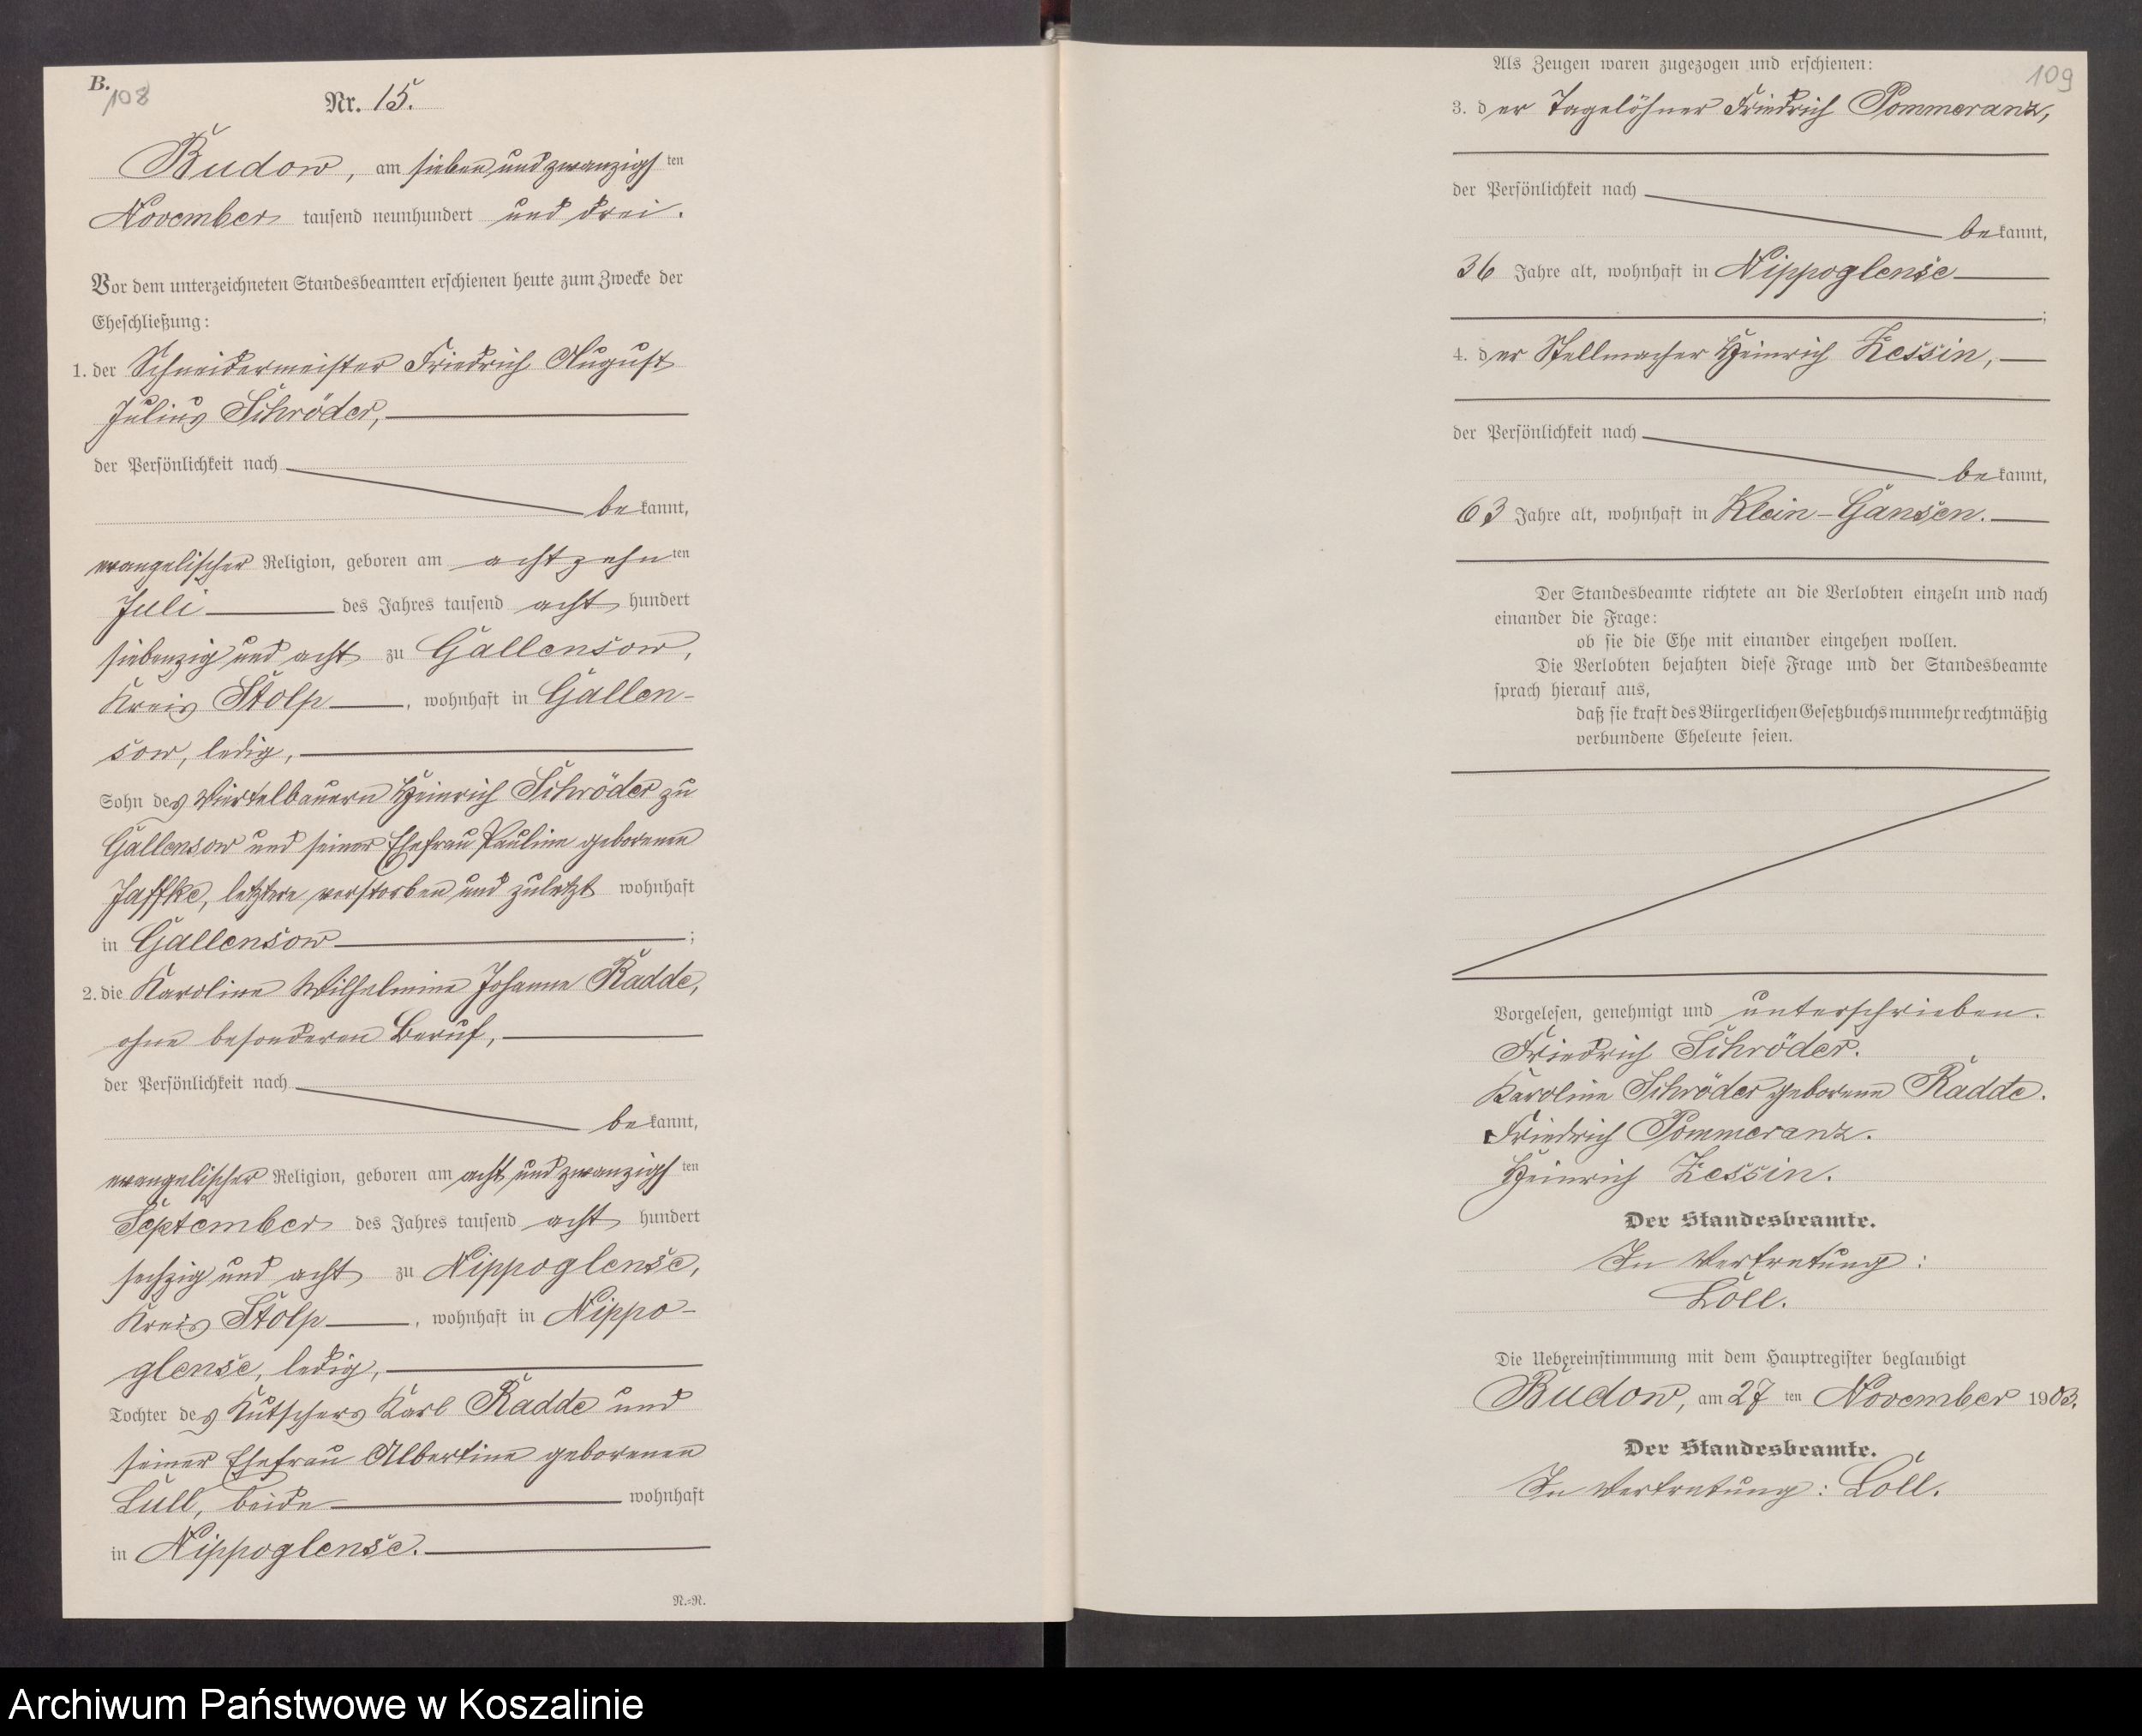 B.
108
Nr. 15.
Budow, am sieben und zwanzigsten
November tausend neunhundert und drei.
Vor dem unterzeichneten Standesbeamten erschienen heute zum Zwecke der
Eheschließung:
1. der Schneidermeister Friedrich August
Julius Schröder,
der Persönlichkeit nach
bekannt,
evangelischer Religion, geboren am achtzehnten
Juli des Jahres tausend acht hundert
siebenzig und acht zu Gallensow,
Kreis Stolp, wohnhaft in Gallen-
sow, ledig,
Sohn des Viertelbauern Heinrich Schröder zu
Gallensow und seiner Ehefrau Pauline geborenen
Jaffke, letztere verstorben und zuletzt wohnhaft
in Gallensow;
2. die Karoline Wilhelmine Johanne Radde,
ohne besonderen Beruf,
der Persönlichkeit nach
bekannt,
evangelischer Religion, geboren am acht und zwanzigsten
September des Jahres tausend acht hundert
sechzig und acht zu Nippoglense,
Kreis Stolp, wohnhaft in Nippo-
glense, ledig,
Tochter des Kutschers Karl Radde und
seiner Ehefrau Albertine geborenen
Lüll, beide wohnhaft
in Nippoglense.
N.=N.
109
Als Zeugen waren zugezogen und erschienen:
3. der Tagelöhner Friedrich Pommeranz,
der Persönlichkeit nach
bekannt,
36 Jahre alt, wohnhaft in Nippoglense
;
4. der Stellmacher Heinrich Zessin,
der Persönlichkeit nach
bekannt,
63 Jahre alt, wohnhaft in Klein-Gansen.
Der Standesbeamte richtete an die Verlobten einzeln und nach
einander die Frage:
ob sie die Ehe mit einander eingehen wollen.
Die Verlobten bejahten diese Frage und der Standesbeamte
sprach hierauf aus,
daß sie kraft des Bürgerlichen Gesetzbuchs nunmehr rechtmäßig
verbundene Eheleute seien.
Vorgelesen, genehmigt und unterschrieben.
Friedrich Schröder.
Karoline Schröder geborene Radde.
Friedrich Pommeranz.
Heinrich Zessin.
Der Standesbeamte.
In Vertretung:
Löll.
Die Uebereinstimmung mit dem Hauptregister beglaubigt
Budow, am 27 ten November 1903.
Der Standesbeamte.
In Vertretung: Löll.
Archiwum Państwowe w Koszalinie